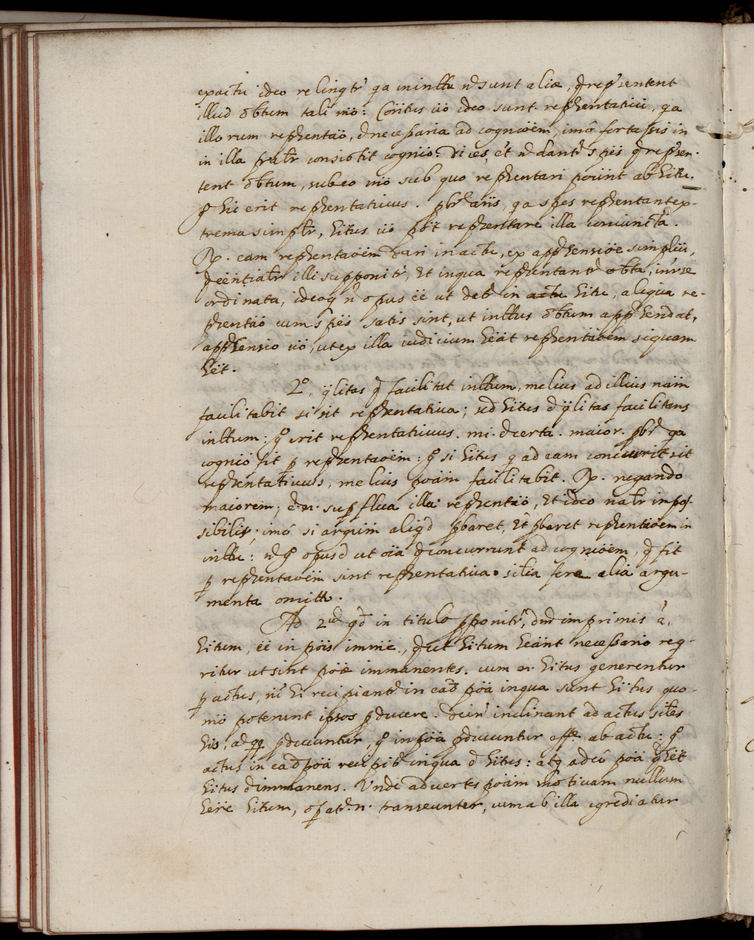 exactu ideo relingtr qa in inllu n sunt aliæ, q repñsentent
illud obtum tali mō: Cōitus uō ideo sunt repñentatiui, qa
illorum repñentaō, ē necessaria ad cognioēm, imō fortassis in
in illa prālr consistit cognio: Dices, et n dantr spēs q repñen-
tent obtum, sub eo mō sub quo repñentari poūnt ab hitu.
g hic erit repñentatiuus. pbr aīis, qa spes repñentant ex-
trema simplr, hitus uō pōt repñentare illa coniuncta.
R. eam repñentaōēm dari in actu, ex appñensiōe simplici,
q eēntialr illi supponitr, et in qua repñentantr obta, inter se
ordinata, ideoq n opus eē ut detr in actu hitu, aliqua re-
pñentaō cum spēs satis sint, ut inllus obtum appñendat,
appñensio uō, ut ex illa iudicium hēat repñentatiōēm siquam
hēt.
2º. qlitas q facilitat inllum, melius ad illius nām
facilitabit si sit repñentatiua; sed hitus ē qlitas facilitans
inllum: g erit repñentatiuus. mi. ē certa. maior. pbr qa
cognio fit p repñentaōēm: g si hitus q ad eam concurrit sit
repñentatiuus, melius poām facilitabit. R. negando
maiorem; ē n. suprflua illa repñentaō, et ideo nālr impos-
sibilis. imó si argum aliqd pbaret, et pbaret repñentiōēm in
inllu: n g opus ē ut oīa q concurrunt ad cognioēm, q fit
p repñentaōēm sint repñentatiua. silia fere alia argu-
menta omitto.
Ad 2um qd in titulo pponitr, dm̄ imprimis
hitum, eē in poīs imm̄e, q ut hitum hēant necessario req-
ritur ut sint poæ immanentes. cum n. hitus generentur
p actus, ni hi recipiantr in eād poā in qua sunt hitus quo-
mō poterunt ipsos pducere. Deīn inclinant ad actus siles
his, a qq pducuntur, g in poā pducuntur effe ab actu: g
actus in eād poā recipitr in qua ē hitus: atq adeó poā q hēt
hitus ē immanens. Unde aduertes poām motiuam nullum
hēre hitum, opat n. transeunter, cum ab illa egrediatur